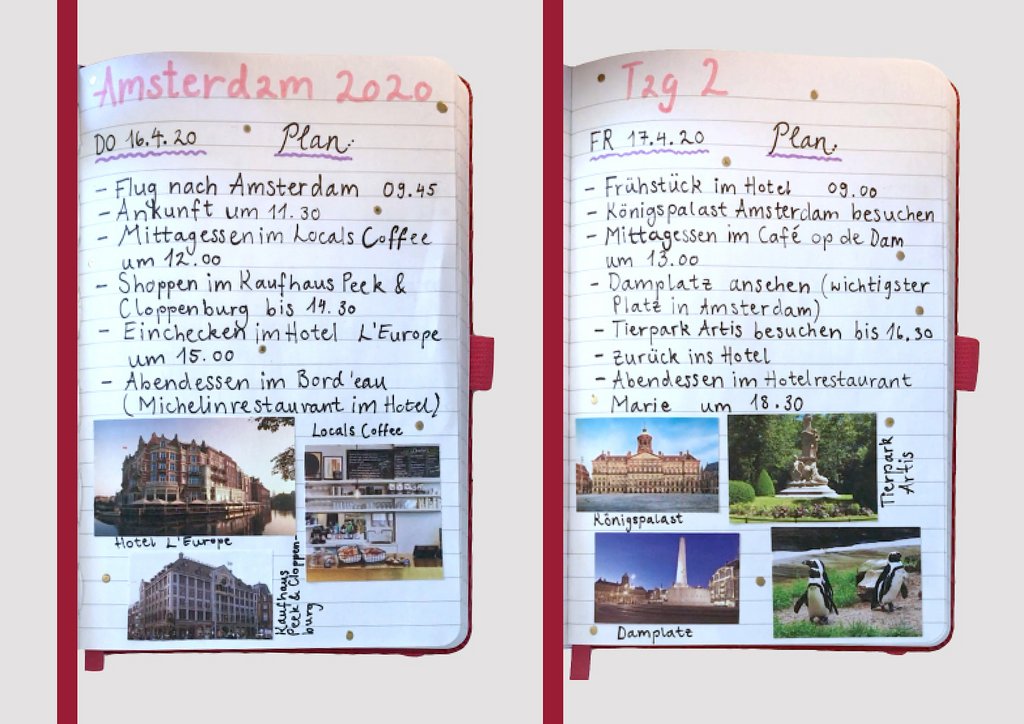 Amsterdam 2020
DO 16.4.20 Plan:
- Flug nach Amsterdam 09.45
- Ankunft um 11.30
- Mittagessen im Locals Coffee
um 12.00
- Shoppen im Kaufhaus Peek &
Cloppenburg bis 14.30
- Einchecken im Hotel L'Europe
um 15.00
- Abendessen im Bord'eau
(Michelinrestaurant im Hotel)
Locals Coffee
Hotel L'Europe
Kaufhaus
Peek & Cloppen-
burg
Tag 2
FR 17.4.20 Plan:
- Frühstück im Hotel 09.00
- Königspalast Amsterdam besuchen
- Mittagessen im Café op de Dam
um 13.00
- Damplatz ansehen (wichtigster
Platz in Amsterdam)
- Tierpark Artis besuchen bis 16.30
- zurück ins Hotel
- Abendessen im Hotelrestaurant
Marie um 18.30
Königspalast
Tierpark
Artis
Damplatz